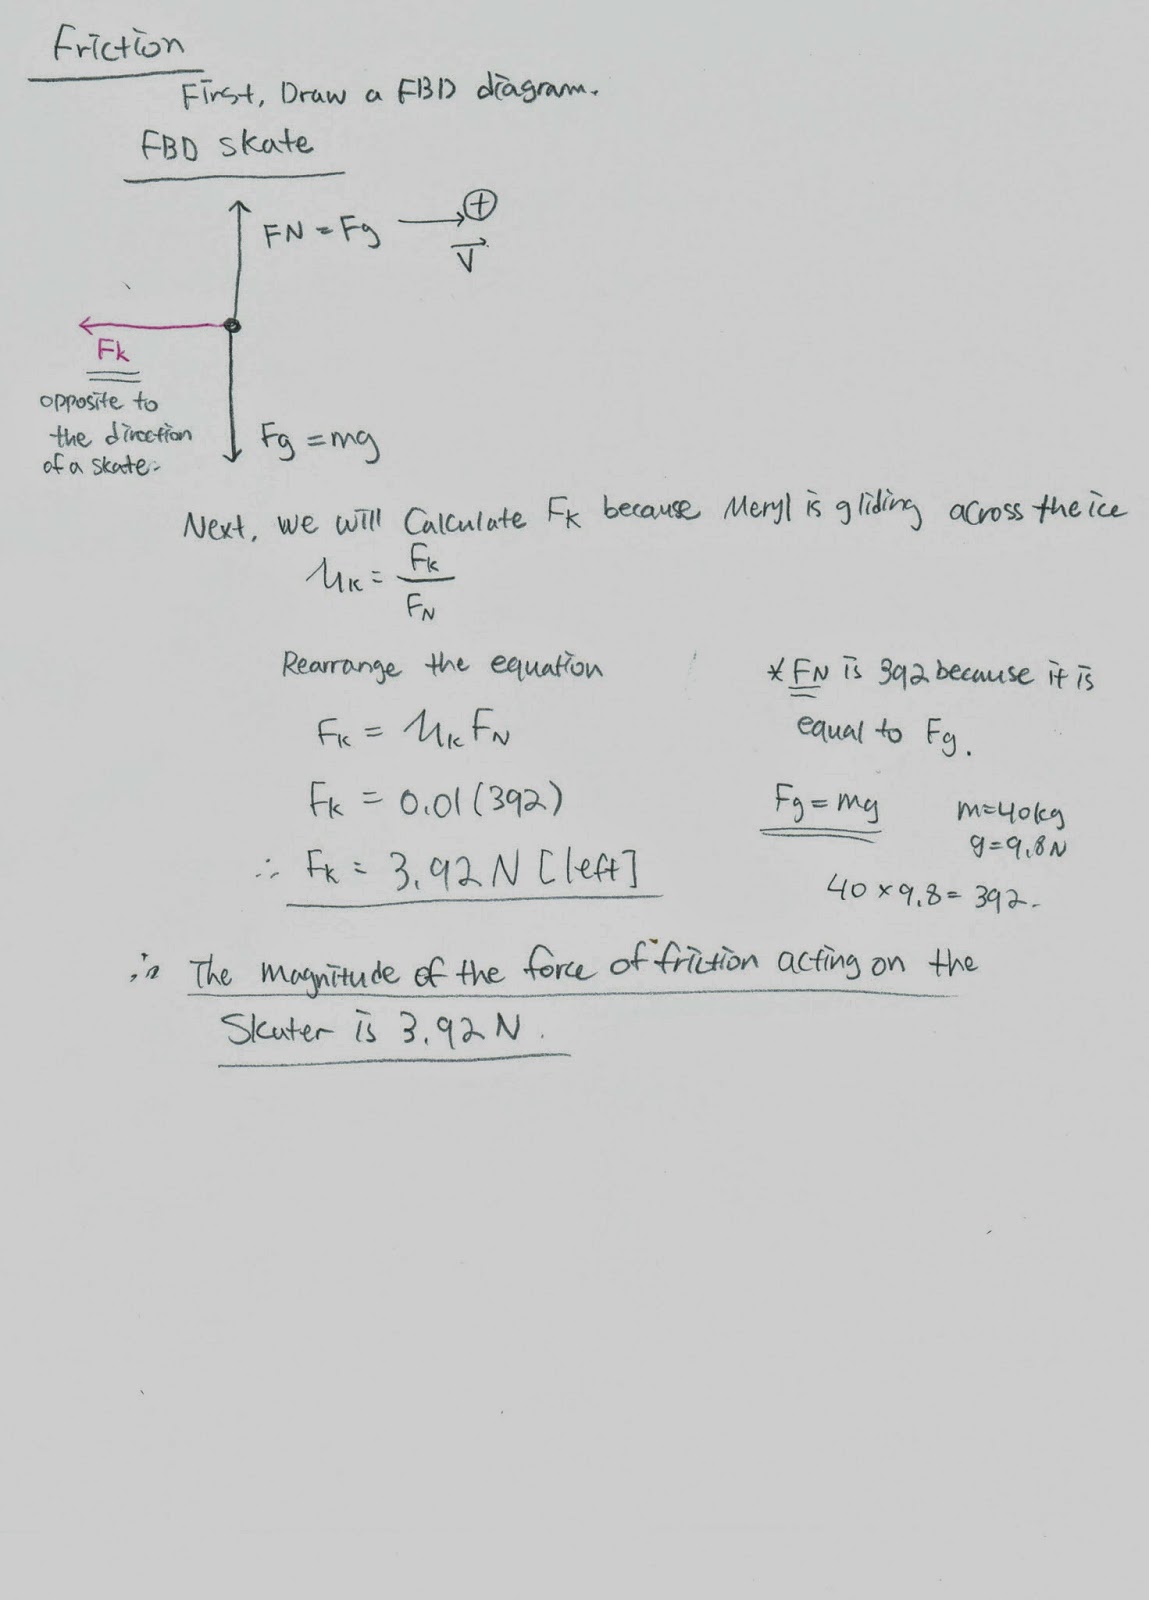 Friction
First, Draw a FBD diagram.
FBD skate
FN = Fg
+
V
Fk
opposite to
the direction
of a skate.
Fg = mg
Next, we will Calculate Fk because Meryl is gliding across the ice
μk = Fk
FN
Rearrange the equation
Fk = μk FN
Fk = 0.01 (392)
∴ Fk = 3.92 N [left]
* FN is 392 because it is
equal to Fg.
Fg = mg
m=40kg
g=9.8N
40 × 9.8 = 392.
∴ The magnitude of the force of friction acting on the
Skater is 3.92 N.